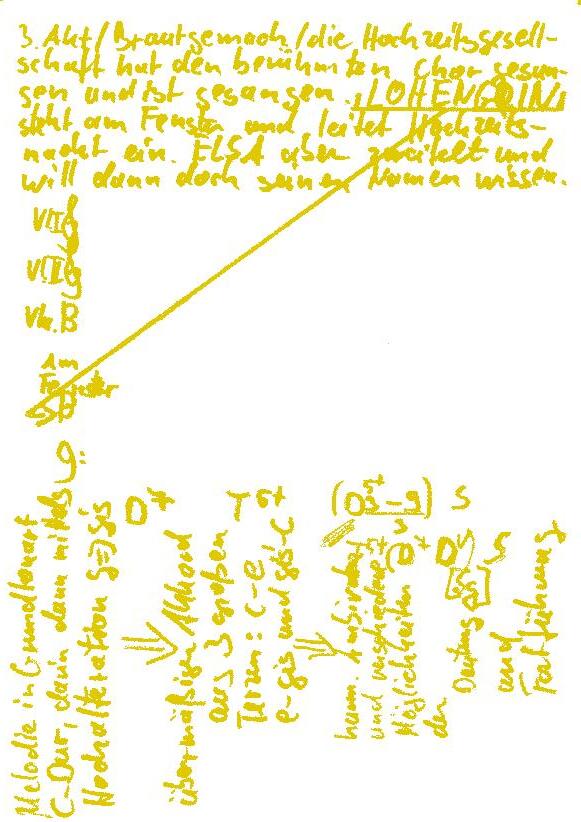 3. Akt / Brautgemach / die Hochzeitsgesell-
schaft hat den berühmten Chor gesun-
gen und ist gegangen. LOHENGRIN
steht am Fenster und leitet Hochzeits-
nacht ein. ELSA aber zweifelt und
will dann doch seinen Namen wissen.
Vl I
Vl II
Vla. B
Am
Fenster
g:
Melodie in Grundtonart
C-Dur, darin dann mittels
Hochalteration g=>gis
D
=>
übermäßigen Akkord
aus 3 großen
Terzen: c-e
e-gis und gis-c
T 5+
=>
S
harm. Ambivalenz
und
Möglichkeiten
der
Deutung
und
Fortführung